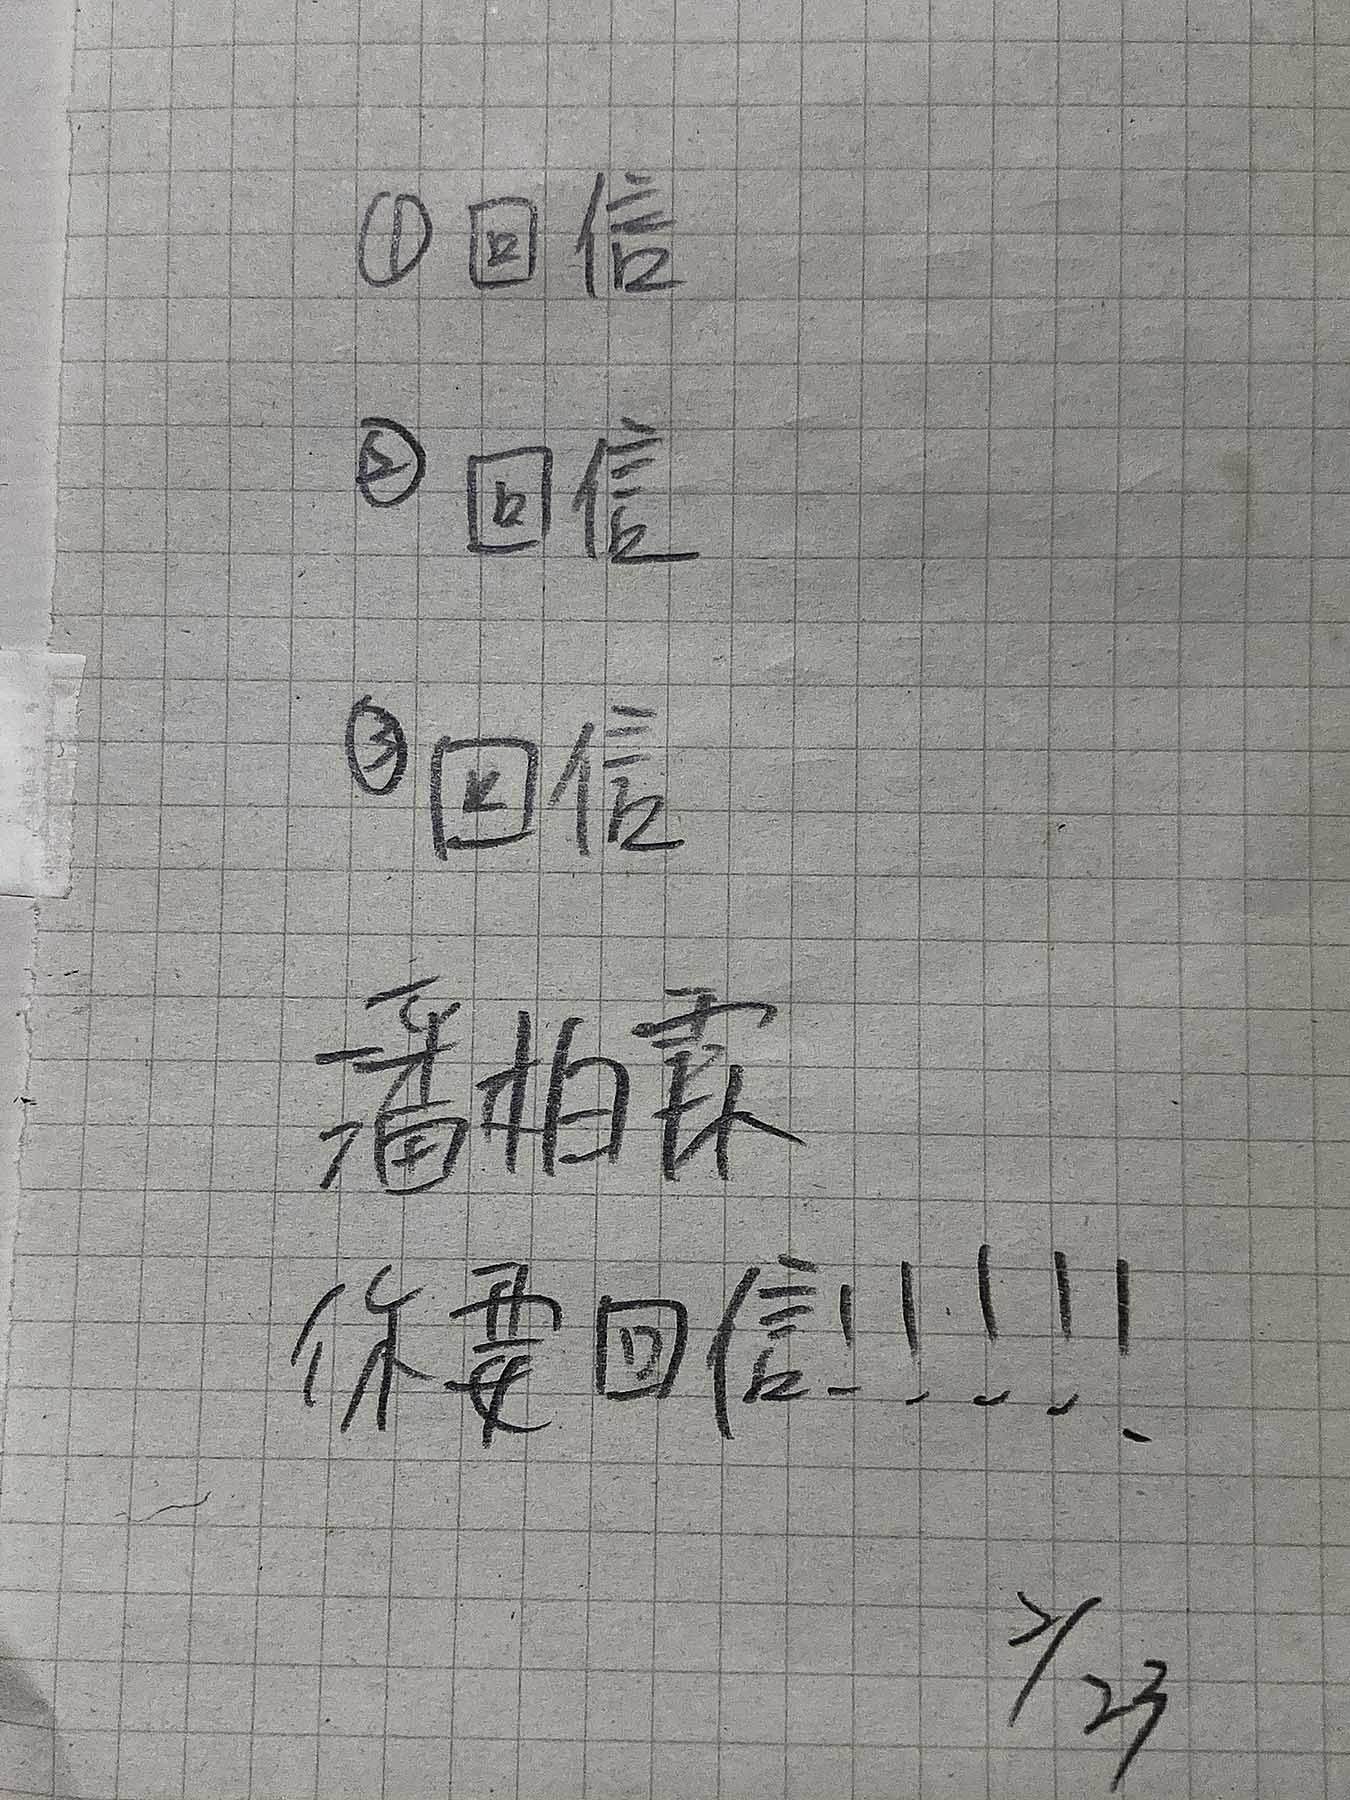 ①回信
②回信
③回信
潘柏霖
你要回信!!!!!
2/23